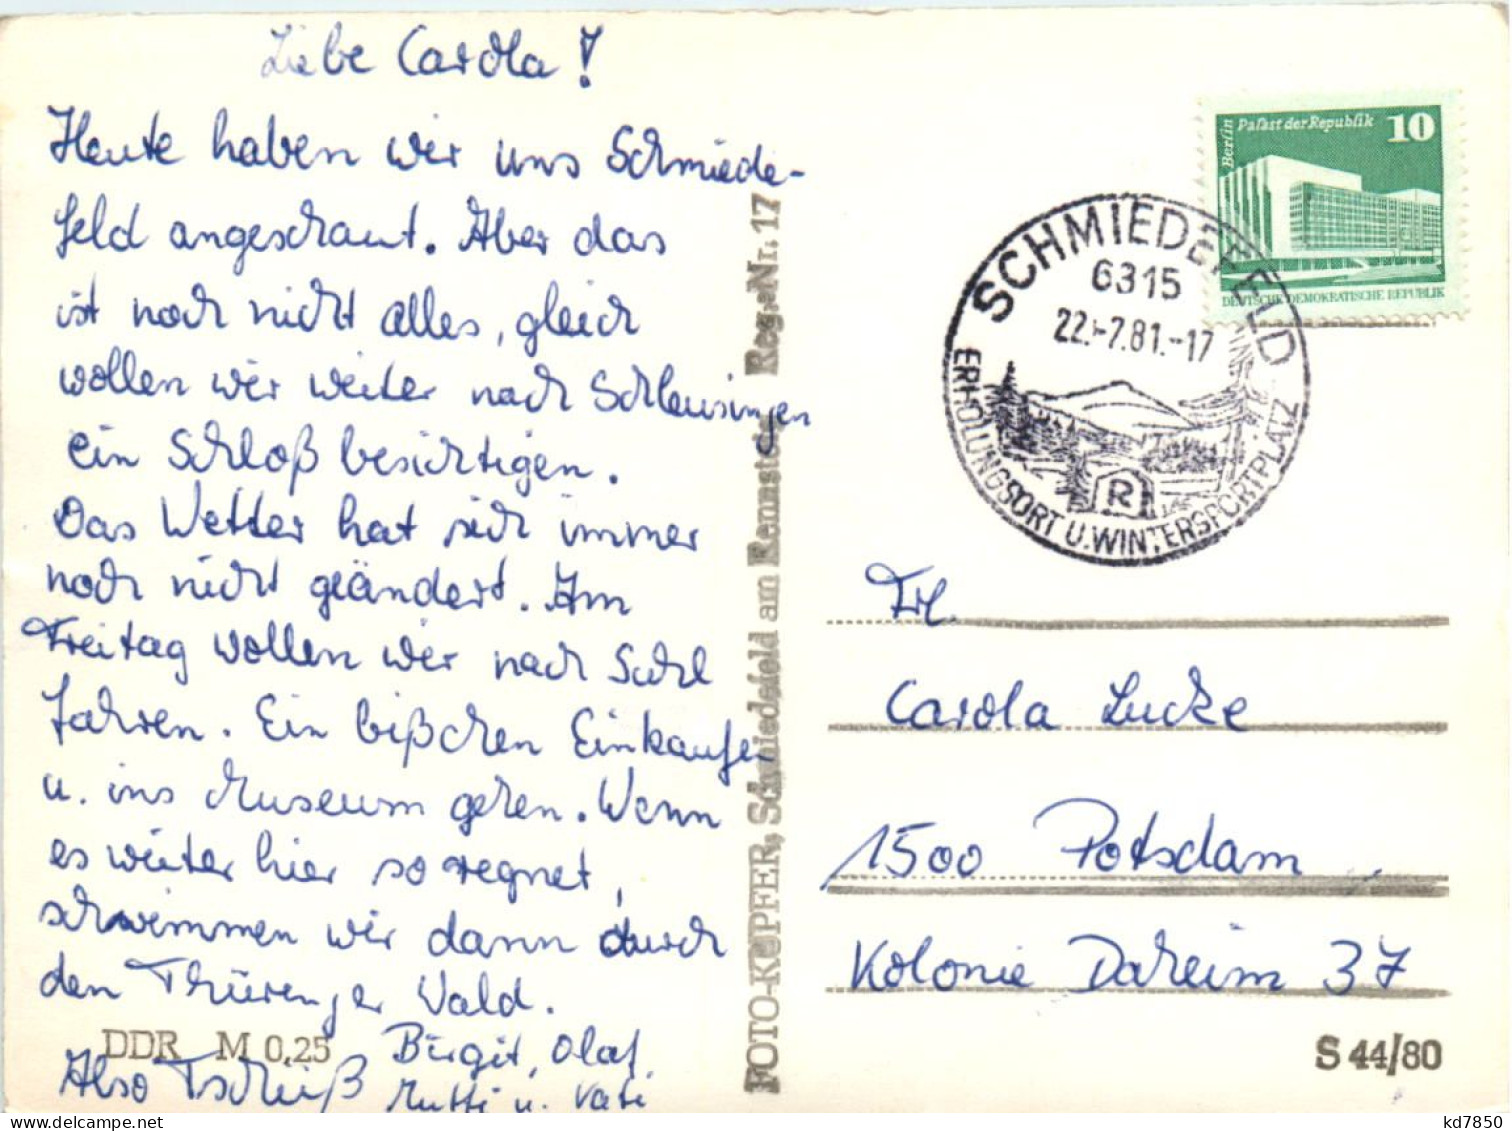 Liebe Carola!
Heute haben wir uns Schmiede-
feld angeschaut. Aber das
ist noch nicht alles, gleich
wollen wir weiter nach Schleusingen
ein Schloß besichtigen.
Das Wetter hat sich immer
noch nicht geändert. Am
Freitag wollen wir nach Suhl
fahren. Ein bißchen Einkaufen
u. ins Museum gehen. Wenn
es weiter hier so regnet,
schwimmen wir dann durch
den Thüringer Wald.
DDR M 0,25
Birgit, Olaf
Also Tschüß
Mutti u. Vati
FOTO-KÜPFER, Schmiedefeld am Rennsteig Reg.-Nr. 17
Berlin
Palast der Republik
10
DEUTSCHE DEMOKRATISCHE REPUBLIK
SCHMIEDEFELD
6315
22.-7.81.-17
R
ERHOLUNGSORT U. WINTERSPORTPLATZ
Frl.
Carola Lucke
1500 Potsdam
Kolonie Daheim 37
S 44/80
kd7850